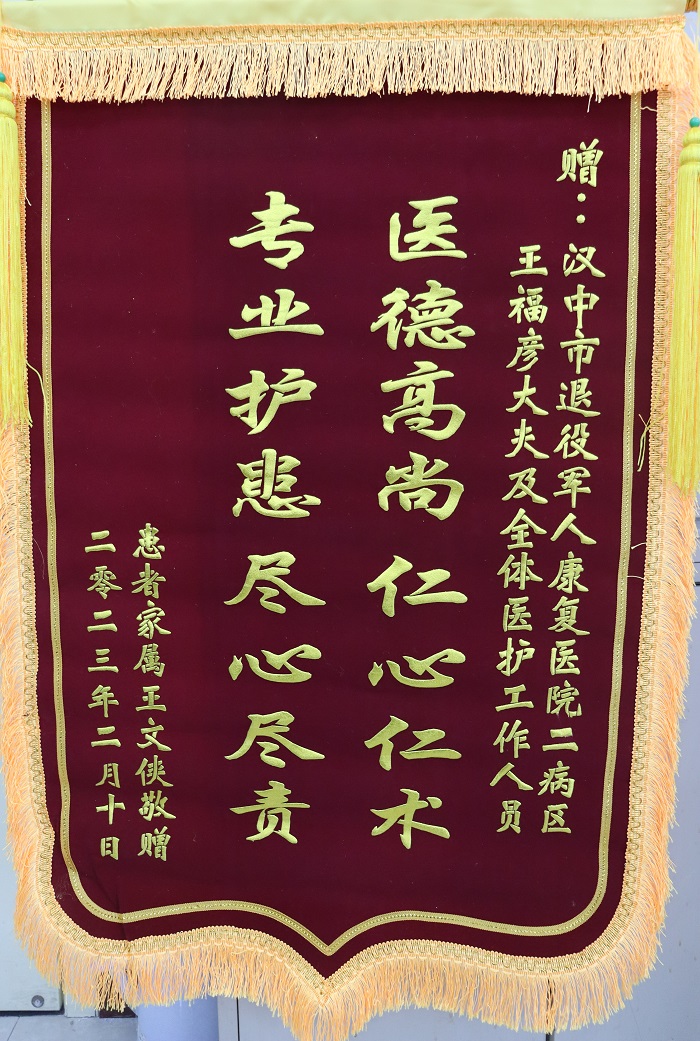 赠：汉中市退役军人康复医院二病区
王福彦大夫及全体医护工作人员
医德高尚仁心仁术
专业护患尽心尽责
患者家属王文侠敬赠
二零二三年二月十日